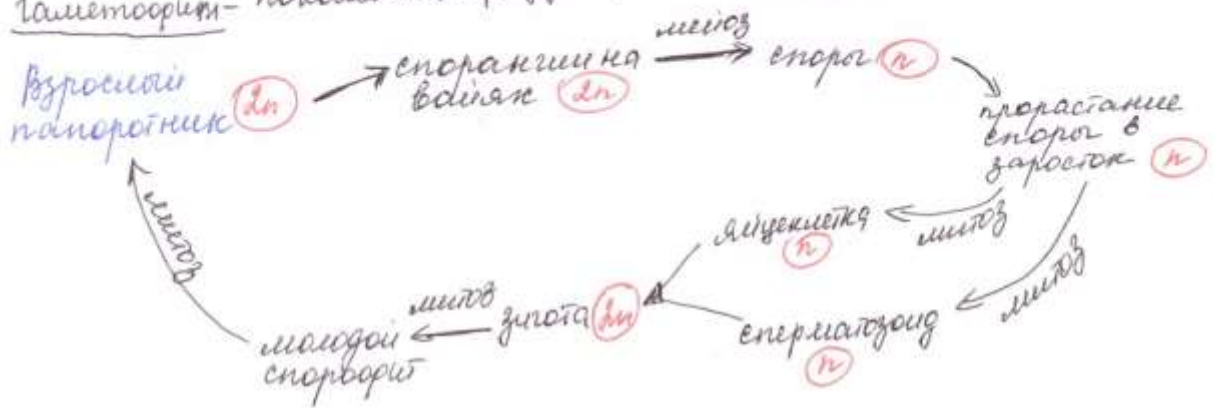 Гаметофит -
Взрослый
папоротник 2n
спорангии на
вайях 2n
мейоз
споры n
прорастание
споры в
заросток n
митоз
яйцеклетка
n
митоз
сперматозоид
n
зигота 2n
митоз
молодой
спорофит
митоз